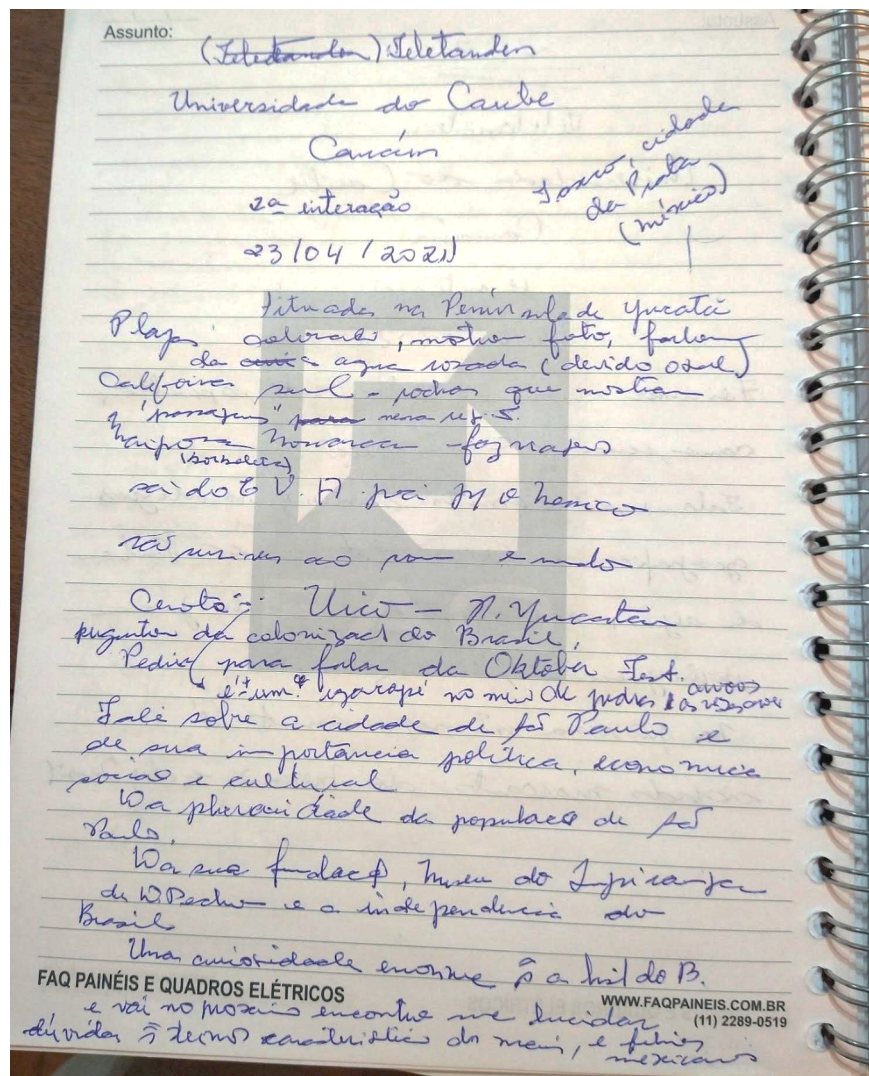 Assunto:
(Teletanden) Teletanden
Universidade do Caribe
Cancún
Taxco, cidade
da Prata
(México)
2ª interação
23/04/2021
situada na Península de Yucatã
Playas colorads, mostrou foto, falou
da agua rosada (devido o sal)
California sul - rochas que mostram
"passagens" para nessa
Mariposa Monarca - faz viagens
(borboleta)
sai do E.U.A. para o Mexico
ao som
Cenote: Uico - P. Yucatan
perguntou da colonizaç do Brasil,
Pediu para falar da Oktober Fest.
é um igarapé no meio de pedras
Falei sobre a cidade de São Paulo e
de sua importancia política, economica
social e cultural
Da pluralidade da populaçao de São
Paulo.
Da sua fundaçã, Museu do Ipiranga
de D. Pedro e a independencia do
Brasil
Uma curiosidade enorme p a hist do B.
FAQ PAINÉIS E QUADROS ELÉTRICOS
WWW.FAQPAINEIS.COM.BR
(11) 2289-0519
e vai no proximo encontro me elucidar
dúvidas s/ termos caracteristico dos mais, e filmes
mexicanos